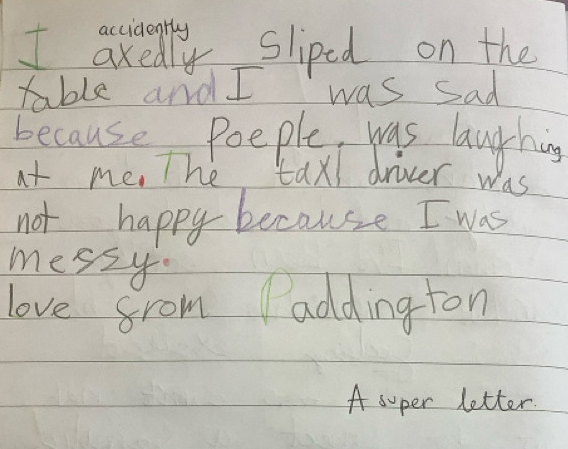 accidently
I axedly sliped on the
table and I was sad
because Poeple. was laughing
at me. The taxi driver was
not happy because I was
messy.
love from Paddington
A super letter.